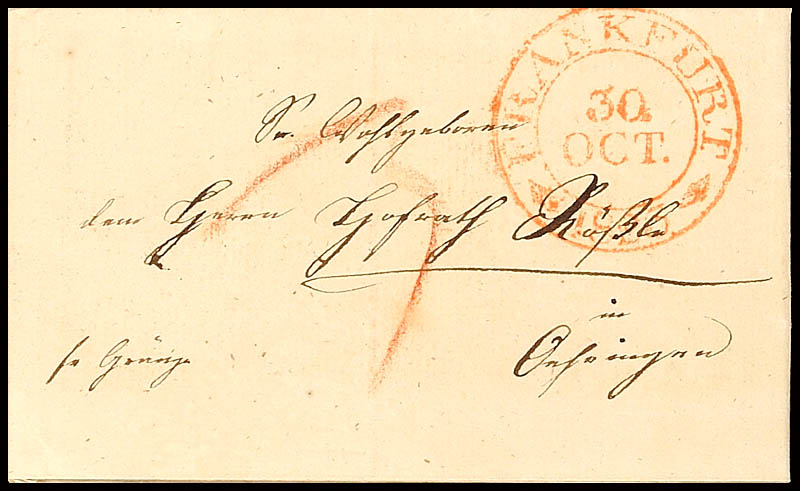 FRANKFURT
30
OCT.
Sr. Wohlgeboren
dem Herrn Hofrath Rößle
in
Oehringen
fr Gränze